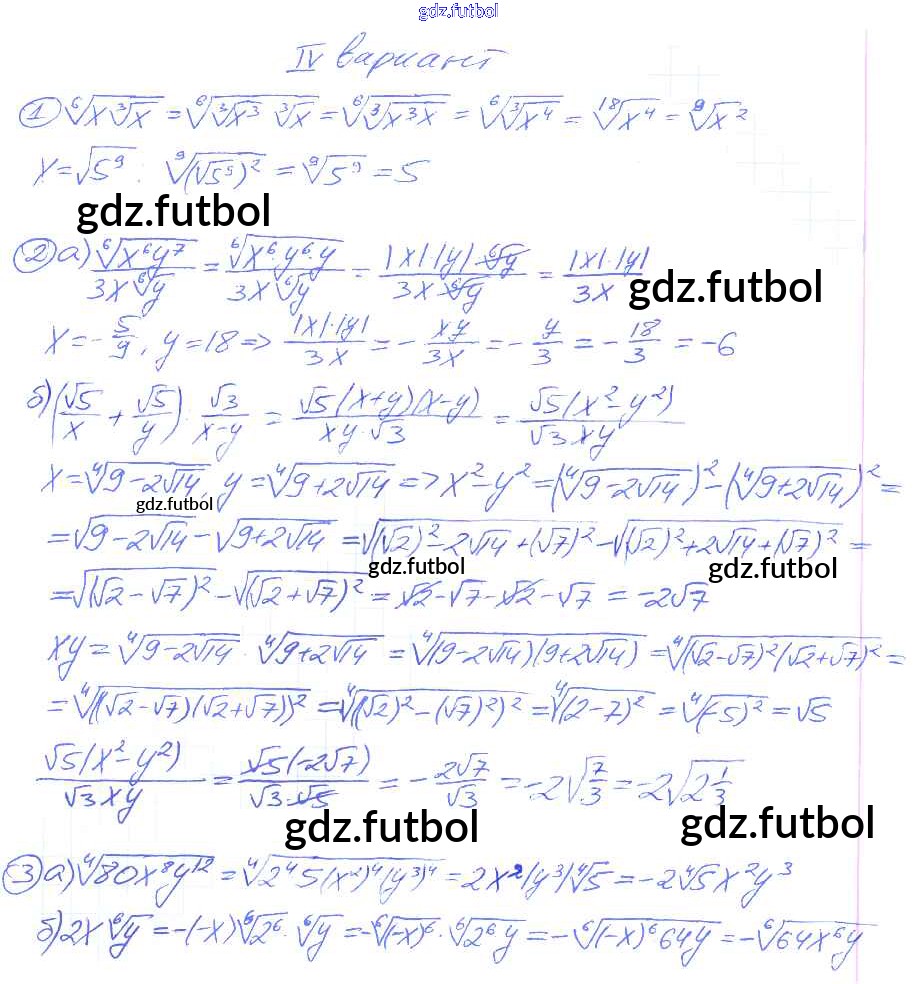 gdz.futbol
IV вариант
① ⁶√(x∛x) = ⁶√(∛x³ ∛x) = ⁶√(∛(x³x)) = ⁶√(∛x⁴) = ¹⁸√x⁴ = ⁹√x²
x = √5⁹ : ⁹√((√5⁵)²) = ⁹√5⁹ = 5
gdz.futbol
② а) ⁶√(x⁶y⁷)/(3x ⁶√y) = ⁶√(x⁶·y⁶·y)/(3x ⁶√y) = |x|·|y|·⁶√y/(3x ⁶√y) = |x|·|y|/(3x)
gdz.futbol
x = -5/9, y = 18 => |x|·|y|/(3x) = -xy/(3x) = -y/3 = -18/3 = -6
б) (√5/x + √5/y) : √3/(x-y) = √5(x+y)(x-y)/(xy·√3) = √5(x²-y²)/(√3·xy)
x = ⁴√(9-2√14), y = ⁴√(9+2√14) => x²-y² = (⁴√(9-2√14))² - (⁴√(9+2√14))² =
gdz.futbol
= √(9-2√14) - √(9+2√14) = √((√2)²-2√14+(√7)²) - √((√2)²+2√14+(√7)²) =
gdz.futbol
gdz.futbol
= √((√2-√7)²) - √((√2+√7)²) = √2-√7-√2-√7 = -2√7
xy = ⁴√(9-2√14) · ⁴√(9+2√14) = ⁴√((9-2√14)(9+2√14)) = ⁴√((√2-√7)²(√2+√7)²) =
= ⁴√(((√2-√7)(√2+√7))²) = ⁴√(((√2)²-(√7)²)²) = ⁴√((2-7)²) = ⁴√((-5)²) = √5
√5(x²-y²)/(√3xy) = √5(-2√7)/(√3·√5) = -2√7/√3 = -2√(7/3) = -2√(2 1/3)
gdz.futbol
gdz.futbol
③ а) ⁴√(80x⁸y¹²) = ⁴√(2⁴5(x²)⁴(y³)⁴) = 2x²|y³|⁴√5 = -2⁴√5x²y³
б) 2x ⁶√y = -(-x) ⁶√2⁶ · ⁶√y = -⁶√((-x)⁶) · ⁶√(2⁶y) = -⁶√((-x)⁶64y) = -⁶√(64x⁶y)